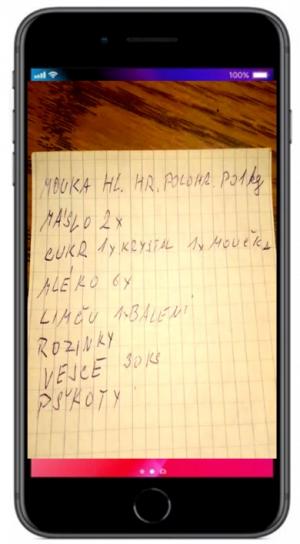 100%
MOUKA HL. HR. POLOHR. PO 1 kg
MÁSLO 2x
CUKR 1x KRYSTAL 1x MOUČKA
MLÉKO 6x
LIMČU 1 BALENÍ
ROZINKY
VEJCE 30 KS
PIŠKOTY